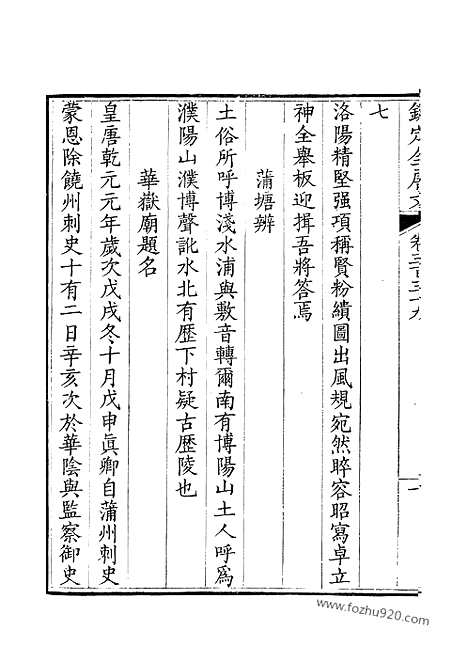 欽定全唐文 卷三百三十九
七
洛陽精堅强項稱賢粉繢圖出風規宛然睟容昭寫卓立
神全舉板迎揖吾將答焉
蒲塘辨
土俗所呼博淺水浦與敷音轉爾南有博陽山土人呼爲
濮陽山濮博聲訛水北有歷下村疑古歷陵也
華嶽廟題名
皇唐乾元元年歲次戊戌冬十月戊申眞卿自蒲州刺史
蒙恩除饒州刺史十有二日辛亥次於華陰與監察御史
www.fozhu920.com